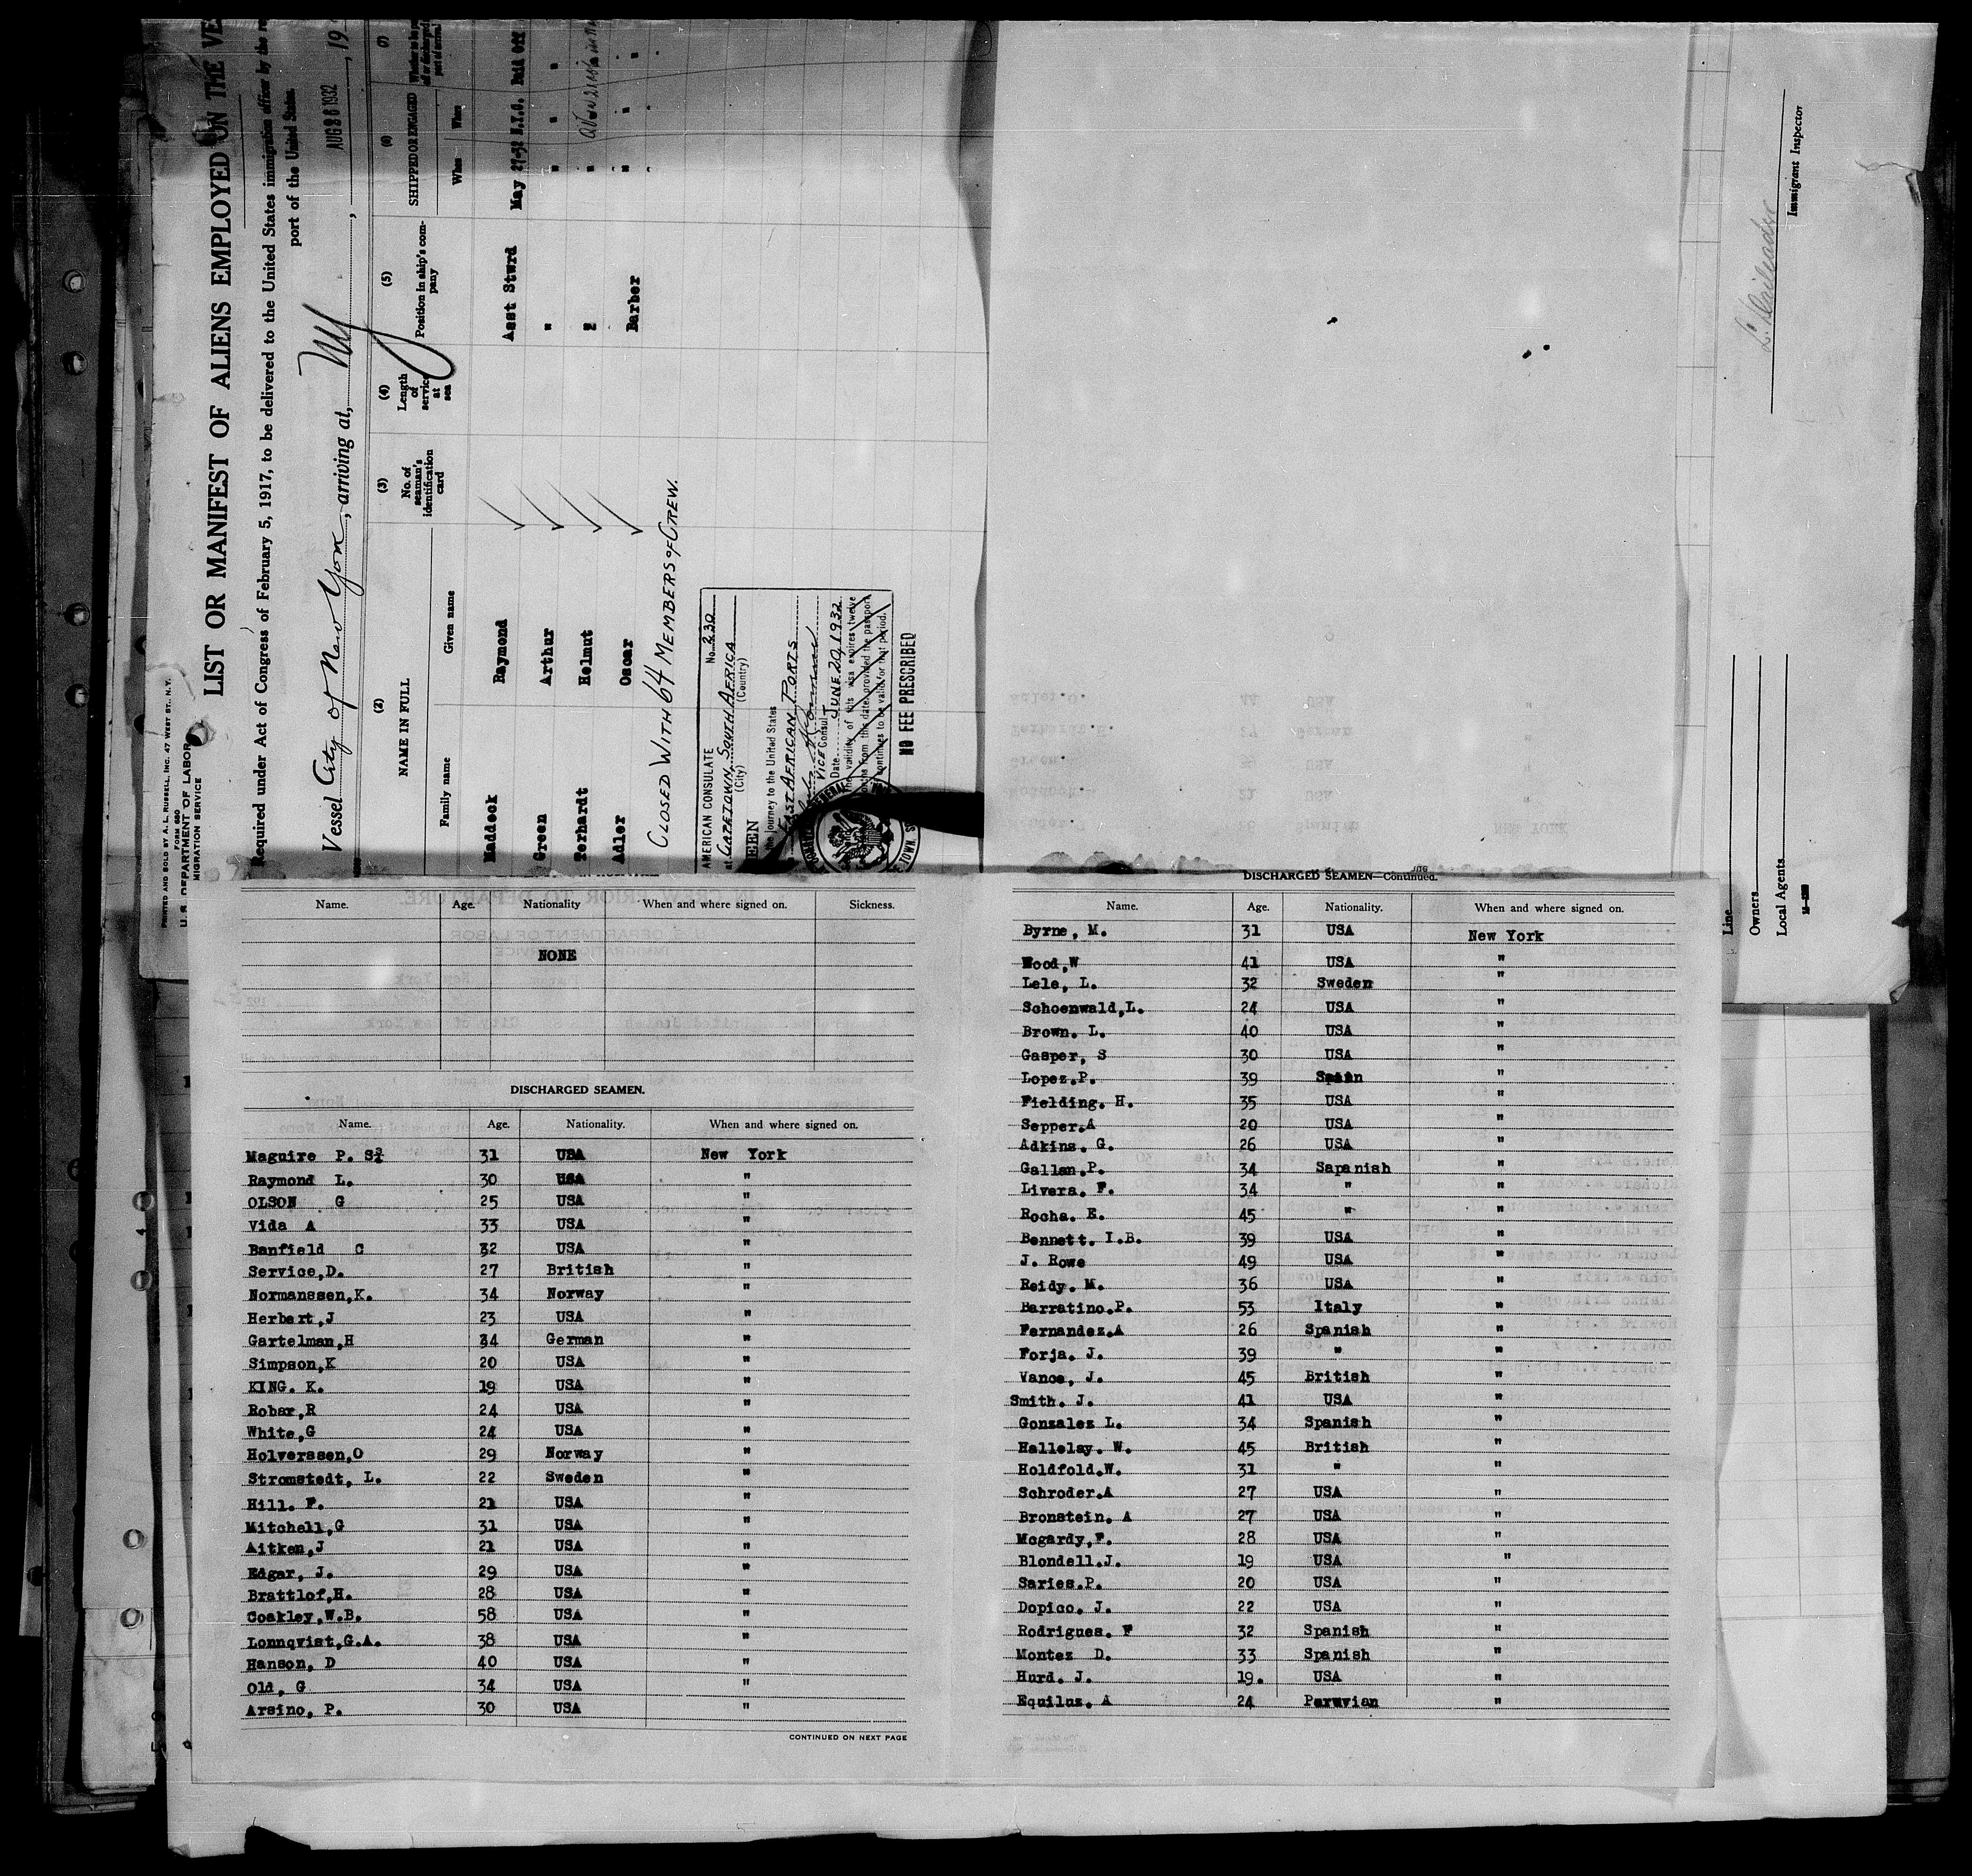 PRINTED AND SOLD BY A. L. RUSSELL, INC. 47 WEST ST., N. Y.
FORM 680
U. S. DEPARTMENT OF LABOR
MIGRATION SERVICE
LIST OR MANIFEST OF ALIENS EMPLOYED ON THE VE
Required under Act of Congress of February 5, 1917, to be delivered to the United States immigration officer by the re
port of the United States
Vessel City of New York, arriving at, NY, AUG 28 1932, 19
(2) (3) (4) (5) (6) (7)
NAME IN FULL No. of seaman's identification card Length of service at sea Position in ship's company SHIPPED OR ENGAGED
Family name Given name When Where
Maddeck Raymond Asst Stwrd May 27-32 N.Y.C. Paid Off
Green Arthur " " " "
Terhardt Helmut " "
Adler Oscar Barber " " "
CLOSED WITH 64 MEMBERS OF CREW.
AMERICAN CONSULATE No. 230
at CAPETOWN, SOUTH AFRICA
(City) (Country)
EEN
the journey to the United States
EAST AFRICAN PORTS
VICE Consul
Date JUNE 20, 1932
The validity of this visa expires twelve
months from this date, provided the passport
continues to be valid for that period.
NO FEE PRESCRIBED
Immigrant Inspector
Line
Owners
Local Agents
Name. Age. Nationality When and where signed on. Sickness.
NONE
DISCHARGED SEAMEN.
Name. Age. Nationality. When and where signed on.
Maguire P. 31 USA New York
Raymond L. 30 USA "
OLSON G 25 USA "
Vida A 33 USA "
Banfield C 32 USA "
Service,D. 27 British "
Normanssen,K. 34 Norway "
Herbert,J 23 USA "
Gartelman,H 34 German "
Simpson,K 20 USA "
KING. K. 19 USA "
Robar,R 24 USA "
White,G 24 USA "
Holverssen,O 29 Norway "
Stromstedt, L. 22 Sweden "
Hill. F. 21 USA "
Mitchell,G 31 USA "
Aitken,J 21 USA "
Edgar, J. 29 USA "
Brattlof,H. 28 USA "
Coakley,W.B. 58 USA "
Lonnqvist,G.A. 38 USA "
Hanson, D 40 USA "
Old, G 34 USA "
Arsino, P. 30 USA "
CONTINUED ON NEXT PAGE
DISCHARGED SEAMEN—Continued.
Name. Age. Nationality. When and where signed on.
Byrne, M. 31 USA New York
Wood,W 41 USA "
Lele, L. 32 Sweden "
Schoenwald,L. 24 USA "
Brown. L. 40 USA "
Gasper, S 30 USA "
Lopez.P. 39 Spain "
Fielding. H. 35 USA "
Sepper.A 20 USA "
Adkins. G. 26 USA "
Gallan.P. 34 Sapanish "
Livera. F. 34 " "
Rocha. E. 45 " "
Bennett. I.B. 39 USA "
J. Rowe 49 USA "
Reidy. M. 36 USA "
Barratino.P. 53 Italy "
Fernandez.A 26 Spanish "
Forja. J. 39 " "
Vance, J. 45 British "
Smith. J. 41 USA "
Gonzalez L. 34 Spanish "
Hallelay. W. 45 British "
Holdfold.W. 31 " "
Schroder.A 27 USA "
Bronstein. A 27 USA "
Mcgardy,F. 28 USA "
Blondell.J. 19 USA "
Saries.P. 20 USA "
Dopico. J. 22 USA "
Rodrigues. F 32 Spanish "
Montez D. 33 Spanish "
Hurd. J. 19. USA "
Equilus. A 24 Peruvian "